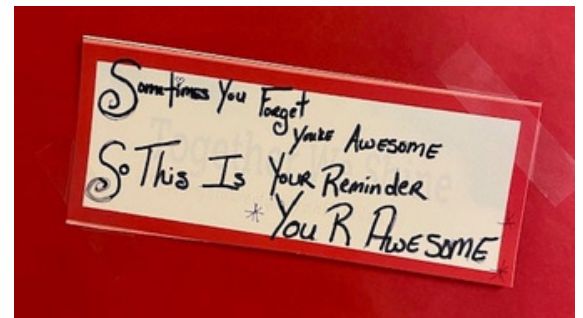 Sometimes You Forget
You're Awesome
So This Is Your Reminder
*You R Awesome
Together We Shine